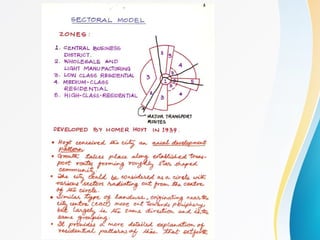 SECTORAL MODEL
ZONES:
1. CENTRAL BUSINESS
DISTRICT.
2. WHOLESALE AND
LIGHT MANUFACTURING
3. LOW CLASS RESIDENTIAL
4. MEDIUM-CLASS
RESIDENTIAL
5. HIGH-CLASS-RESIDENTIAL
3
2
4
3
1
5
3
2
4
3
MAJOR TRANSPORT
ROUTES
DEVELOPED BY HOMER HOYT IN 1939.
• Hoyt conceived the city on axial development
pattern.
• Growth takes place along established trans-
port routes forming roughly star shaped
community.
• The city could be considered as a circle with
various sectors radiating out from the centre
of the circle.
• Similar type of landuse, originating near the
city centre (CBD) move out towards periphery,
but largely in the same direction and
same grouping.
• It provides a more detailed explanation of
residential patterns of this that